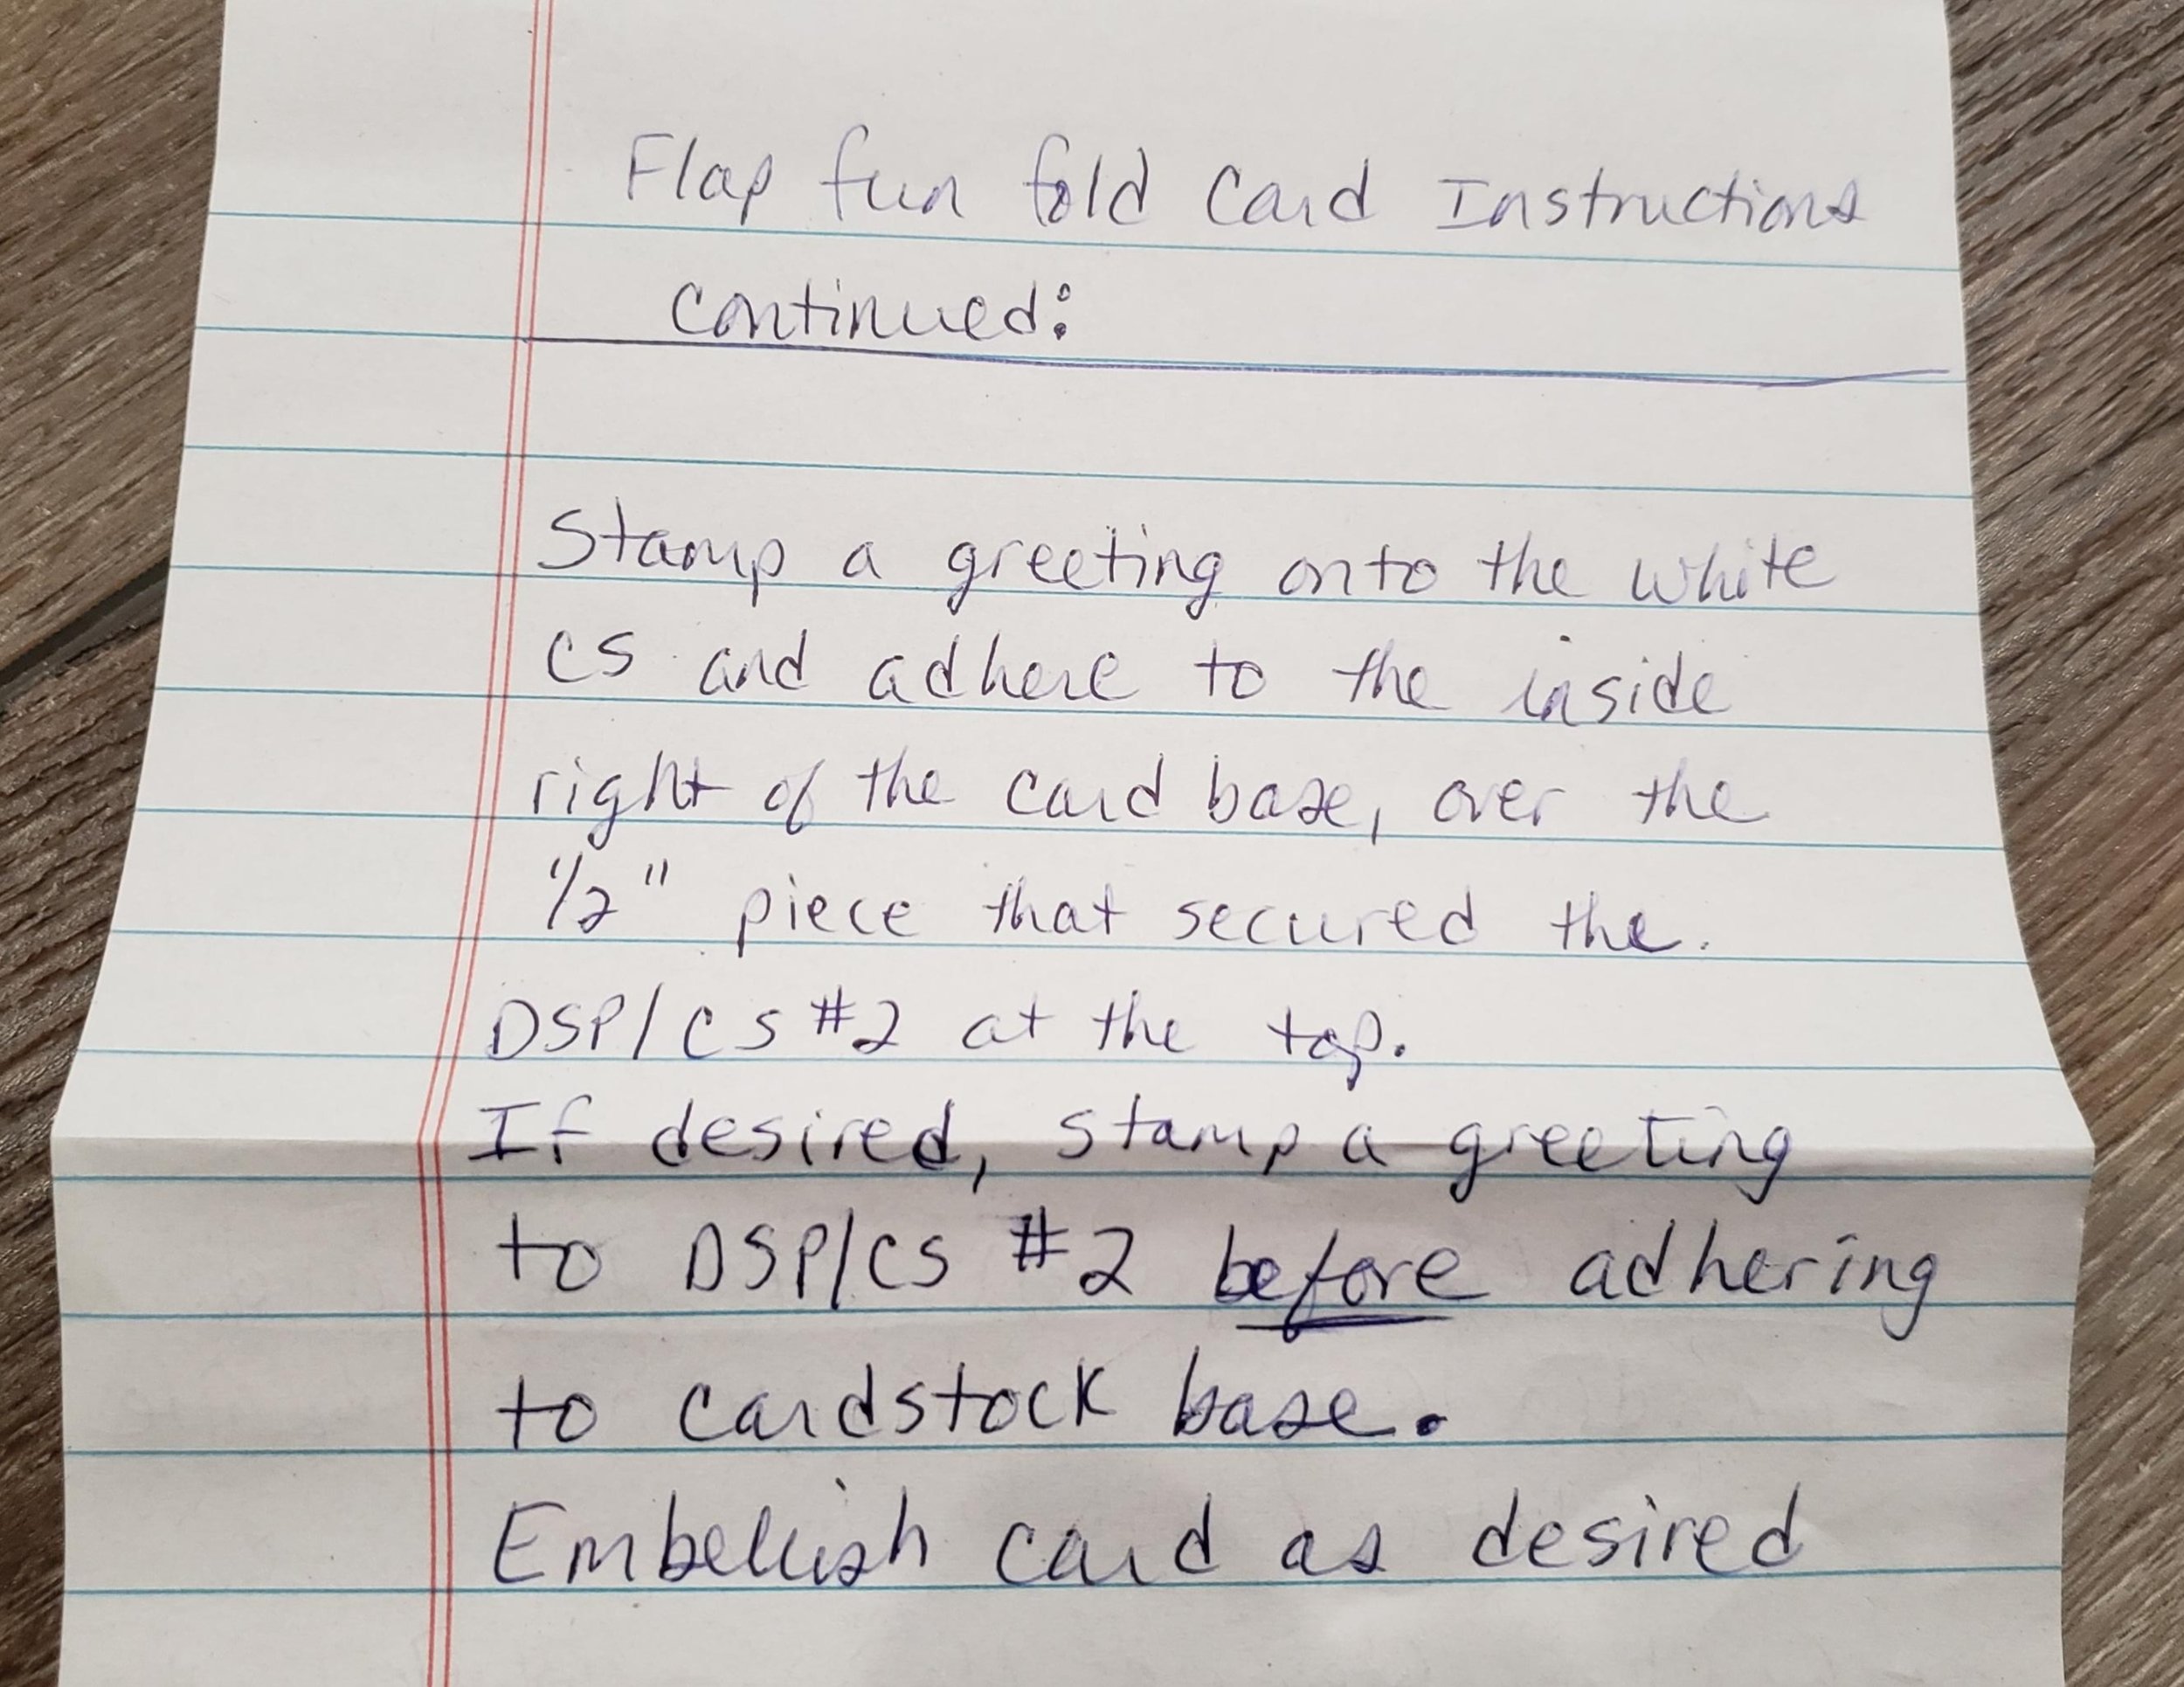 Flap fun fold Card Instructions
continued:
Stamp a greeting onto the white
CS and adhere to the inside
right of the card base, over the
1/2" piece that secured the.
DSP/CS #2 at the top.
If desired, stamp a greeting
to DSP/CS #2 before adhering
to cardstock base.
Embellish card as desired